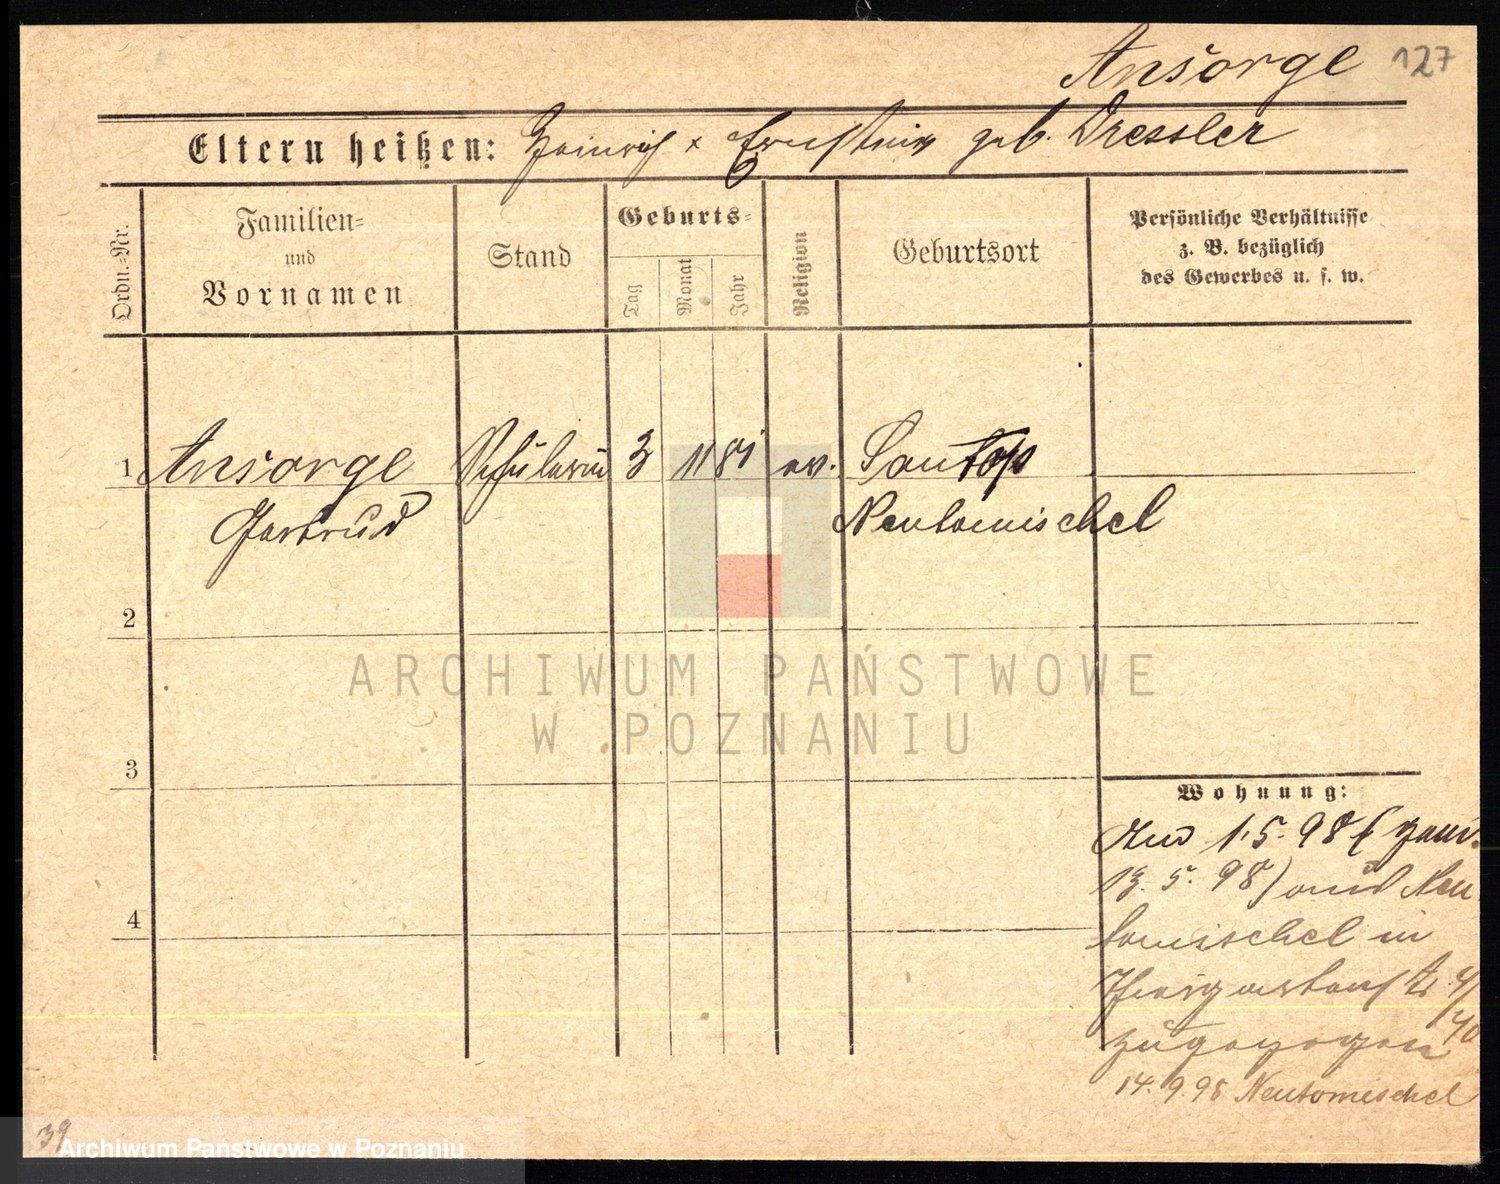 Ansorge 127
Eltern heißen: Heinrich × Ernstine geb. Dressler
Ordn.-Nr.
Familien-
und
Vornamen
Stand
Geburts-
Tag
Monat
Jahr
Religion
Geburtsort
Persönliche Verhältnisse
z. B. bezüglich
des Gewerbes u. s. w.
1 Ansorge Schülerin 3 11 81 ev. Sontop
Gertrud Neutomischel
2
ARCHIWUM PAŃSTWOWE
W POZNANIU
3
Wohnung:
1.5.98 (gem.
13.5.98) aus Neu
tomischel in
Thiergartenstr. 4/
zugezogen 40
4
14.9.98 Neutomischel
39
Archiwum Państwowe w Poznaniu